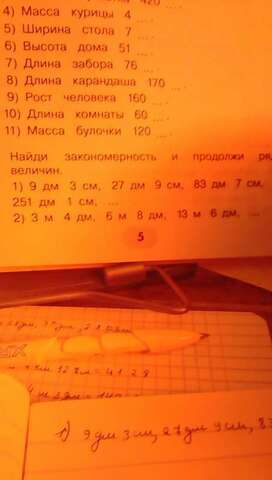 420 ... .
4) Масса курицы 4 ... .
5) Ширина стола 7 ... .
6) Высота дома 51 ... .
7) Длина забора 76 ... .
8) Длина карандаша 170 ... .
9) Рост человека 160 ... .
10) Длина комнаты 60 ... .
11) Масса булочки 120 ... .
Найди закономерность и продолжи ряд
величин.
1) 9 дм 3 см, 27 дм 9 см, 83 дм 7 см,
251 дм 1 см, ...
2) 3 м 4 дм, 6 м 8 дм, 13 м 6 дм, ...
5
1) 9 дм 3 см, 27 дм 9 см, 83